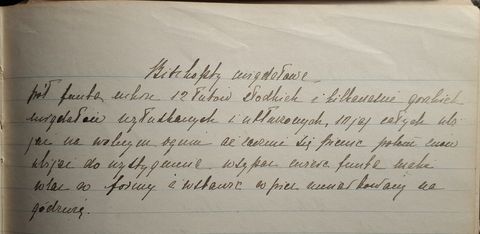 Biszkopty migdałowe
pół funta cukru 12 łutów słodkich i kilkanaście gorzkich
migdałów utłuczonych, 10 jaj całych ubi
jać na wolnym ogniu aż zacznie się potem znów
ubijać do wystygnięcia wsypać funta mąki
wlać w formy i wstawić w piec umiarkowany na
godzinę.